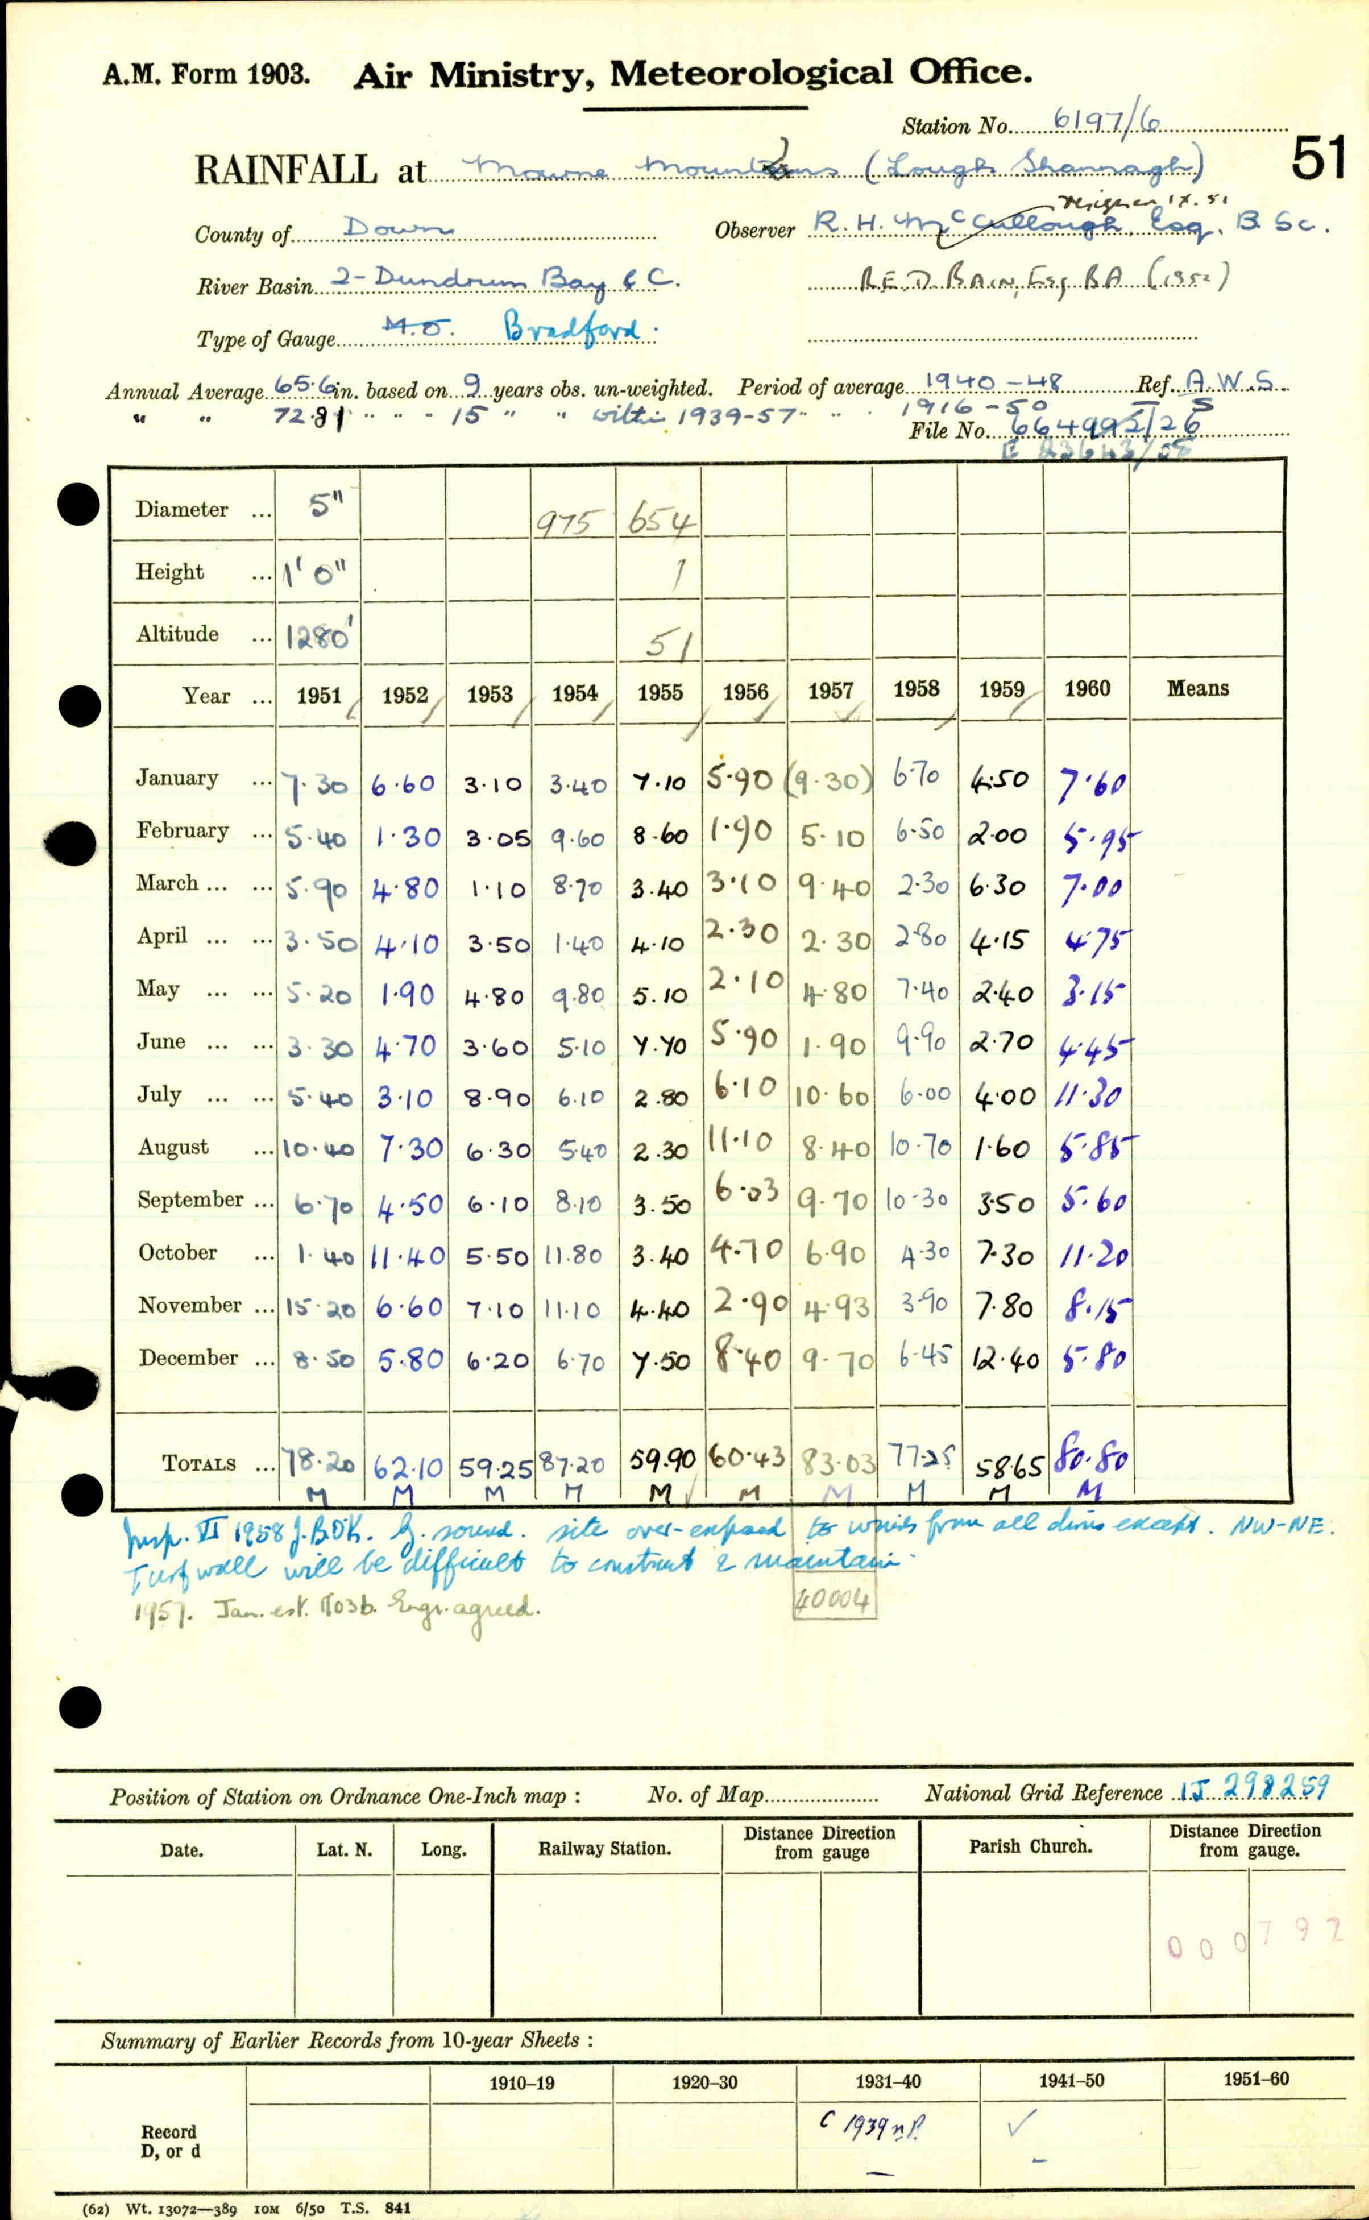 A.M. Form 1903. Air Ministry, Meteorological Office.
Station No. 6197/6
51
RAINFALL at Mourne Mountains (Lough Shannagh)
resigned IX.51
County of Down Observer R. H. McCullough, Esq, B Sc.
River Basin 2-Dundrum Bay & C. R.E.D. BAIN, Esq BA (1952)
Type of Gauge M.O. Bradford.
Annual Average 65.6 in. based on 9 years obs. un-weighted. Period of average 1940-48 Ref. A.W.S.
" " 72.81 " " " 15 " " within 1939-57 " " 1916-50
File No. 664992/26
E 23643/58
Diameter ... 5" 975 654
Height ... 1' 0" 1
Altitude ... 1280' 51
Year ... 1951 1952 1953 1954 1955 1956 1957 1958 1959 1960 Means
January ... 7.30 6.60 3.10 3.40 7.10 5.90 (9.30) 6.70 4.50 7.60
February ... 5.40 1.30 3.05 9.60 8.60 1.90 5.10 6.50 2.00 5.95
March ... ... 5.90 4.80 1.10 8.70 3.40 3.10 9.40 2.30 6.30 7.00
April ... ... 3.50 4.10 3.50 1.40 4.10 2.30 2.30 2.80 4.15 4.75
May ... ... 5.20 1.90 4.80 9.80 5.10 2.10 4.80 7.40 2.40 3.15
June ... ... 3.30 4.70 3.60 5.10 7.70 5.90 1.90 9.90 2.70 4.45
July ... ... 5.40 3.10 8.90 6.10 2.80 6.10 10.60 6.00 4.00 11.30
August ... 10.40 7.30 6.30 5.40 2.30 11.10 8.40 10.70 1.60 5.85
September ... 6.70 4.50 6.10 8.10 3.50 6.03 9.70 10.30 3.50 5.60
October ... 1.40 11.40 5.50 11.80 3.40 4.70 6.90 4.30 7.30 11.20
November ... 15.20 6.60 7.10 11.10 4.40 2.90 4.93 3.90 7.80 8.15
December ... 8.50 5.80 6.20 6.70 7.50 8.40 9.70 6.45 12.40 5.80
TOTALS ... 78.20 62.10 59.25 87.20 59.90 60.43 83.03 77.25 58.65 80.80
M M M M M M M M M M
Insp. VI 1958 J.B.D.K. G. sound. site over-exposed to winds from all dirns except. NW-NE.
Turf wall will be difficult to construct & maintain.
40004
1957. Jan. est. M03b. Engr. agreed.
Position of Station on Ordnance One-Inch map : No. of Map National Grid Reference IJ 298259
Date. Lat. N. Long. Railway Station. Distance from Direction gauge Parish Church. Distance from Direction gauge.
000792
Summary of Earlier Records from 10-year Sheets :
1910–19 1920–30 1931–40 1941–50 1951–60
Record D, or d C 1939 ✓
– –
(62) Wt. 13072—389 10M 6/50 T.S. 841